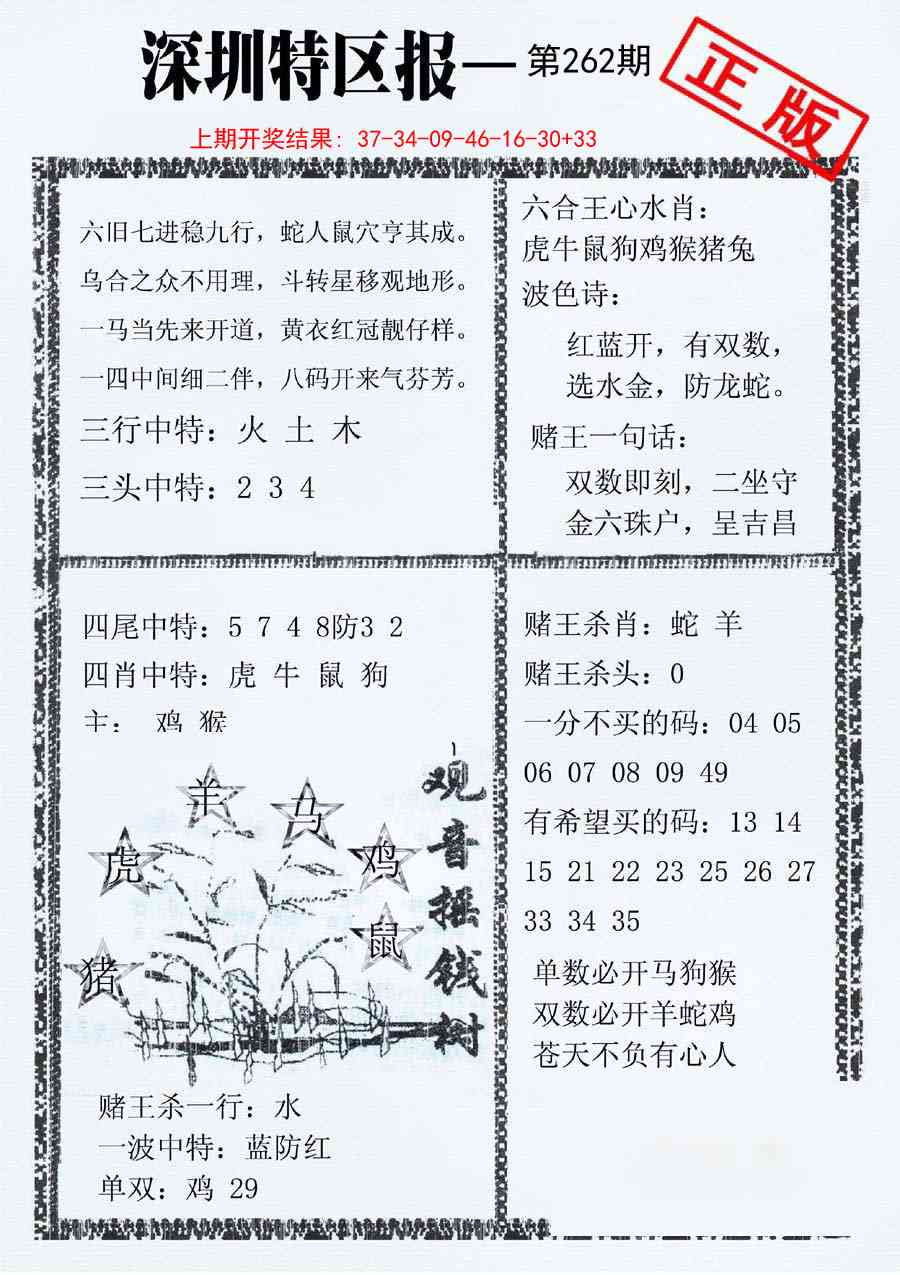 深圳特区报—第262期
正版
上期开奖结果：37-34-09-46-16-30+33
六旧七进稳九行，蛇人鼠穴亨其成。
乌合之众不用理，斗转星移观地形。
一马当先来开道，黄衣红冠靓仔样。
一四中间细二伴，八码开来气芬芳。
三行中特：火 土 木
三头中特：2 3 4
六合王心水肖：
虎牛鼠狗鸡猴猪兔
波色诗：
红蓝开，有双数，
选水金，防龙蛇。
赌王一句话：
双数即刻，二坐守
金六珠户，呈吉昌
四尾中特：5 7 4 8防3 2
四肖中特：虎 牛 鼠 狗
主： 鸡 猴
观音摇钱树
羊
马
虎
鸡
鼠
猪
赌王杀一行：水
一波中特：蓝防红
单双：鸡 29
赌王杀肖：蛇 羊
赌王杀头：0
一分不买的码：04 05
06 07 08 09 49
有希望买的码：13 14
15 21 22 23 25 26 27
33 34 35
单数必开马狗猴
双数必开羊蛇鸡
苍天不负有心人